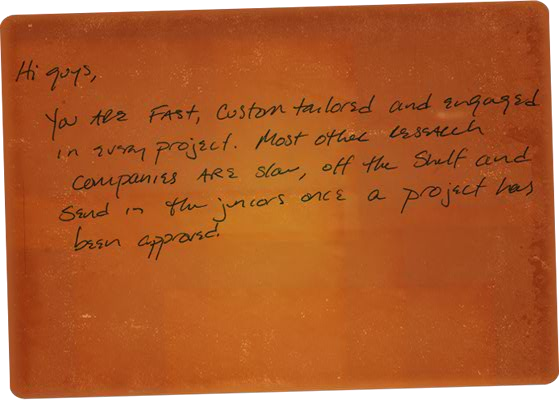 Hi guys,
You ARE FAST, Custom tailored and engaged
in every project. Most other research
companies ARE slow, off the shelf and
send in the juniors once a project has
been approved.